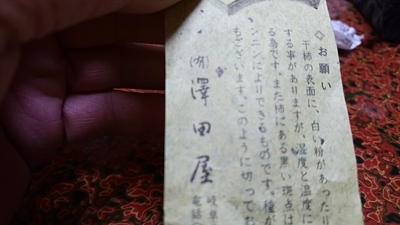 ◇お願い
干柿の表面に、白い粉があったり
する事がありますが、湿度と温度に
る為です。また柿にある黒い斑点は
ンニンによりできるものです。種が
もございます。このように切ってお
㈲澤田屋
岐阜
電話